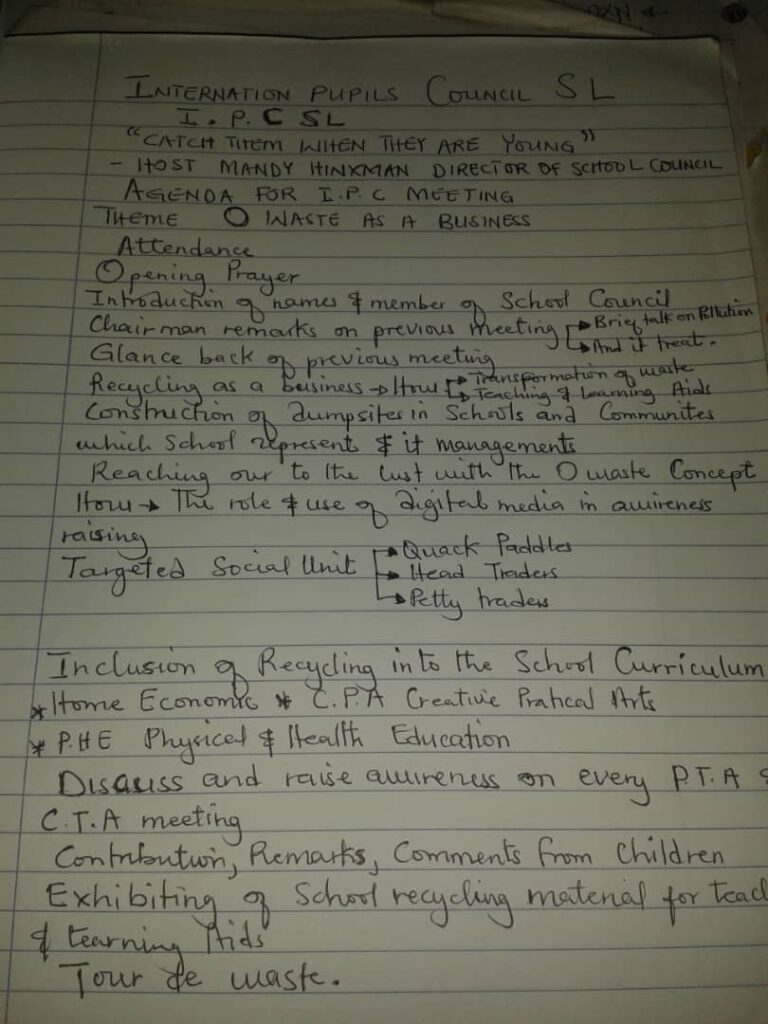 INTERNATION PUPILS COUNCIL SL
I. P. C SL
"CATCH THEM WHEN THEY ARE YOUNG"
- HOST MANDY HINXMAN DIRECTOR OF SCHOOL COUNCIL
AGENDA FOR I.P.C MEETING
THEME O WASTE AS A BUSINESS
Attendance
Opening Prayer
Introduction of names & member of School Council
Chairman remarks on previous meeting → Brief talk on Pollution
→ And it treat.
Glance back of previous meeting
Recycling as a business → How → Transformation of waste
→ Teaching & Learning Aids
Construction of dumpsites in Schools and Communites
which School represent & it managements
Reaching our to the lust with the O waste Concept
How → The role & use of digital media in awireness
raising
Targeted Social Unit → Quack Paddles
→ Head Traders
→ Petty traders
Inclusion of Recycling into the School Curriculum
* Home Economic * C.P.A Creative Pratical Arts
* P.H.E Physical & Health Education
Disauss and raise awireness on every P.T.A &
C.T.A meeting
Contribution, Remarks, Comments from Children
Exhibiting of School recycling material for teac
& Learning Aids
Tour de waste.